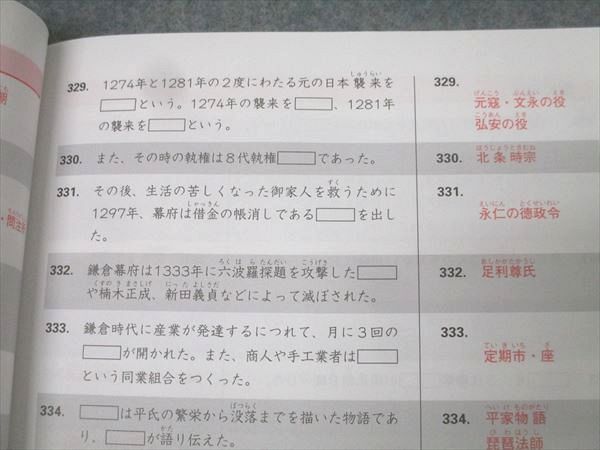 329. 1274年と1281年の2度にわたる元の日本襲来を
□という。1274年の襲来を□、1281年
の襲来を□という。
330. また、その時の執権は8代執権□であった。
331. その後、生活の苦しくなった御家人を救うために
1297年、幕府は借金の帳消しである□を出し
た。
332. 鎌倉幕府は1333年に六波羅探題を攻撃した□
や楠木正成、新田義貞などによって滅ぼされた。
333. 鎌倉時代に産業が発達するにつれて、月に3回の
□が開かれた。また、商人や手工業者は□
という同業組合をつくった。
334. □は平氏の繁栄から没落までを描いた物語であ
り、□が語り伝えた。
329.
元寇・文永の役
弘安の役
330. 北条時宗
331.
永仁の徳政令
332. 足利尊氏
333.
定期市・座
334. 平家物語
琵琶法師
期
・問注所